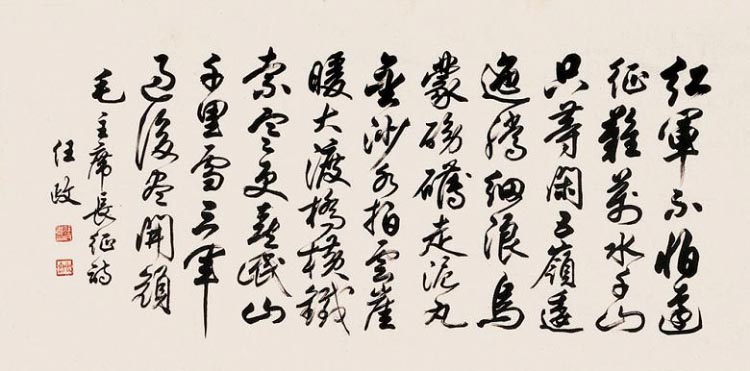 紅軍不怕遠
征難萬水千山
只等閑五嶺逶
迤騰細浪烏
蒙磅礴走泥丸
金沙水拍雲崖
暖大渡橋橫鐵
索寒更喜岷山
千里雪三軍
過後盡開顏
毛主席長征詩
任政